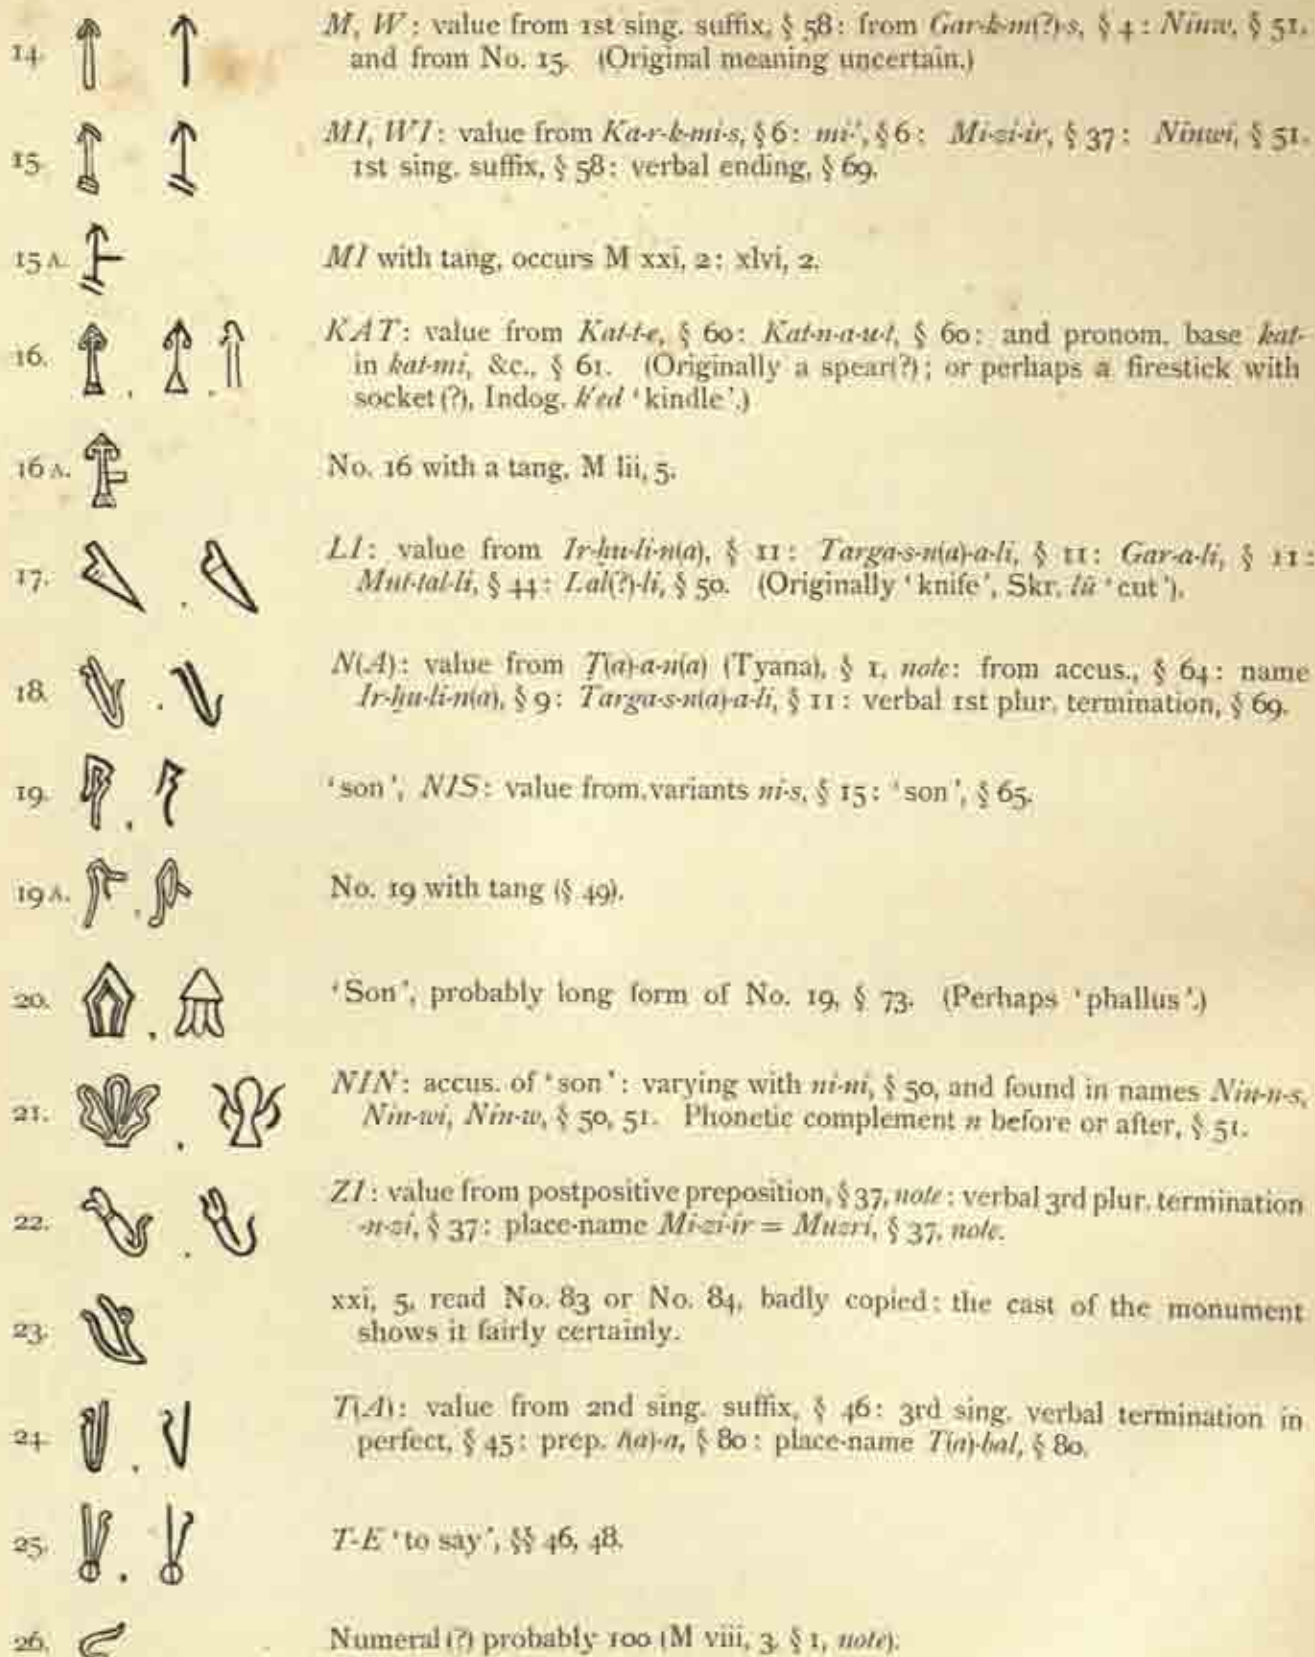 14. M, W: value from 1st sing. suffix, § 58: from Gar-k-m(?)-s, § 4: Ninw, § 51,
and from No. 15. (Original meaning uncertain.)
15. MI, WI: value from Ka-r-k-mi-s, § 6: mi-', § 6: Mi-zi-ir, § 37: Ninwi, § 51.
1st sing. suffix, § 58: verbal ending, § 69.
15 A. MI with tang, occurs M xxi, 2: xlvi, 2.
16. KAT: value from Kat-t-e, § 60: Kat-n-a-u-t, § 60: and pronom. base kat-
in kat-mi, &c., § 61. (Originally a spear(?); or perhaps a firestick with
socket (?), Indog. k'ed 'kindle'.)
16 A. No. 16 with a tang, M lii, 5.
17. LI: value from Ir-ḫu-li-n(a), § 11: Targa-s-n(a)-a-li, § 11: Gar-a-li, § 11:
Mut-tal-li, § 44: Lal(?)-li, § 50. (Originally 'knife', Skr. lū 'cut').
18. N(A): value from Ṭ(a)-a-n(a) (Tyana), § 1, note: from accus., § 64: name
Ir-ḫu-li-n(a), § 9: Targa-s-n(a)-a-li, § 11: verbal 1st plur. termination, § 69.
19. 'son', NIS: value from variants ni-s, § 15: 'son', § 65.
19 A. No. 19 with tang (§ 49).
20. 'Son', probably long form of No. 19, § 73. (Perhaps 'phallus'.)
21. NIN: accus. of 'son': varying with ni-ni, § 50, and found in names Nin-n-s,
Nin-wi, Nin-w, § 50, 51. Phonetic complement n before or after, § 51.
22. ZI: value from postpositive preposition, § 37, note: verbal 3rd plur. termination
-n-zi, § 37: place-name Mi-zi-ir = Muzri, § 37, note.
23. xxi, 5, read No. 83 or No. 84, badly copied: the cast of the monument
shows it fairly certainly.
24. T(A): value from 2nd sing. suffix, § 46: 3rd sing. verbal termination in
perfect, § 45: prep. t(a)-a, § 80: place-name T(a)-bal, § 80.
25. T-E 'to say', §§ 46, 48.
26. Numeral (?) probably 100 (M viii, 3, § 1, note).